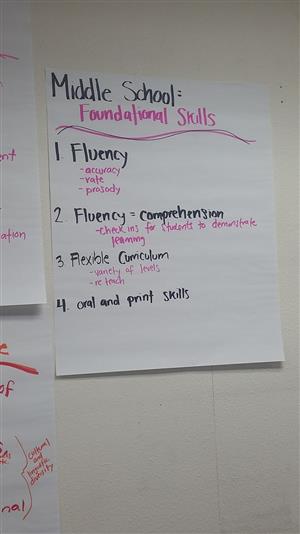 Middle School:
Foundational Skills
1. Fluency
- accuracy
- rate
- prosody
2. Fluency = comprehension
- check ins for students to demonstrate
learning
3. Flexible Curriculum
- variety of levels
- re teach
4. oral and print skills
ent
ation
e
of
nal
cultural
and
linguistic
diversity